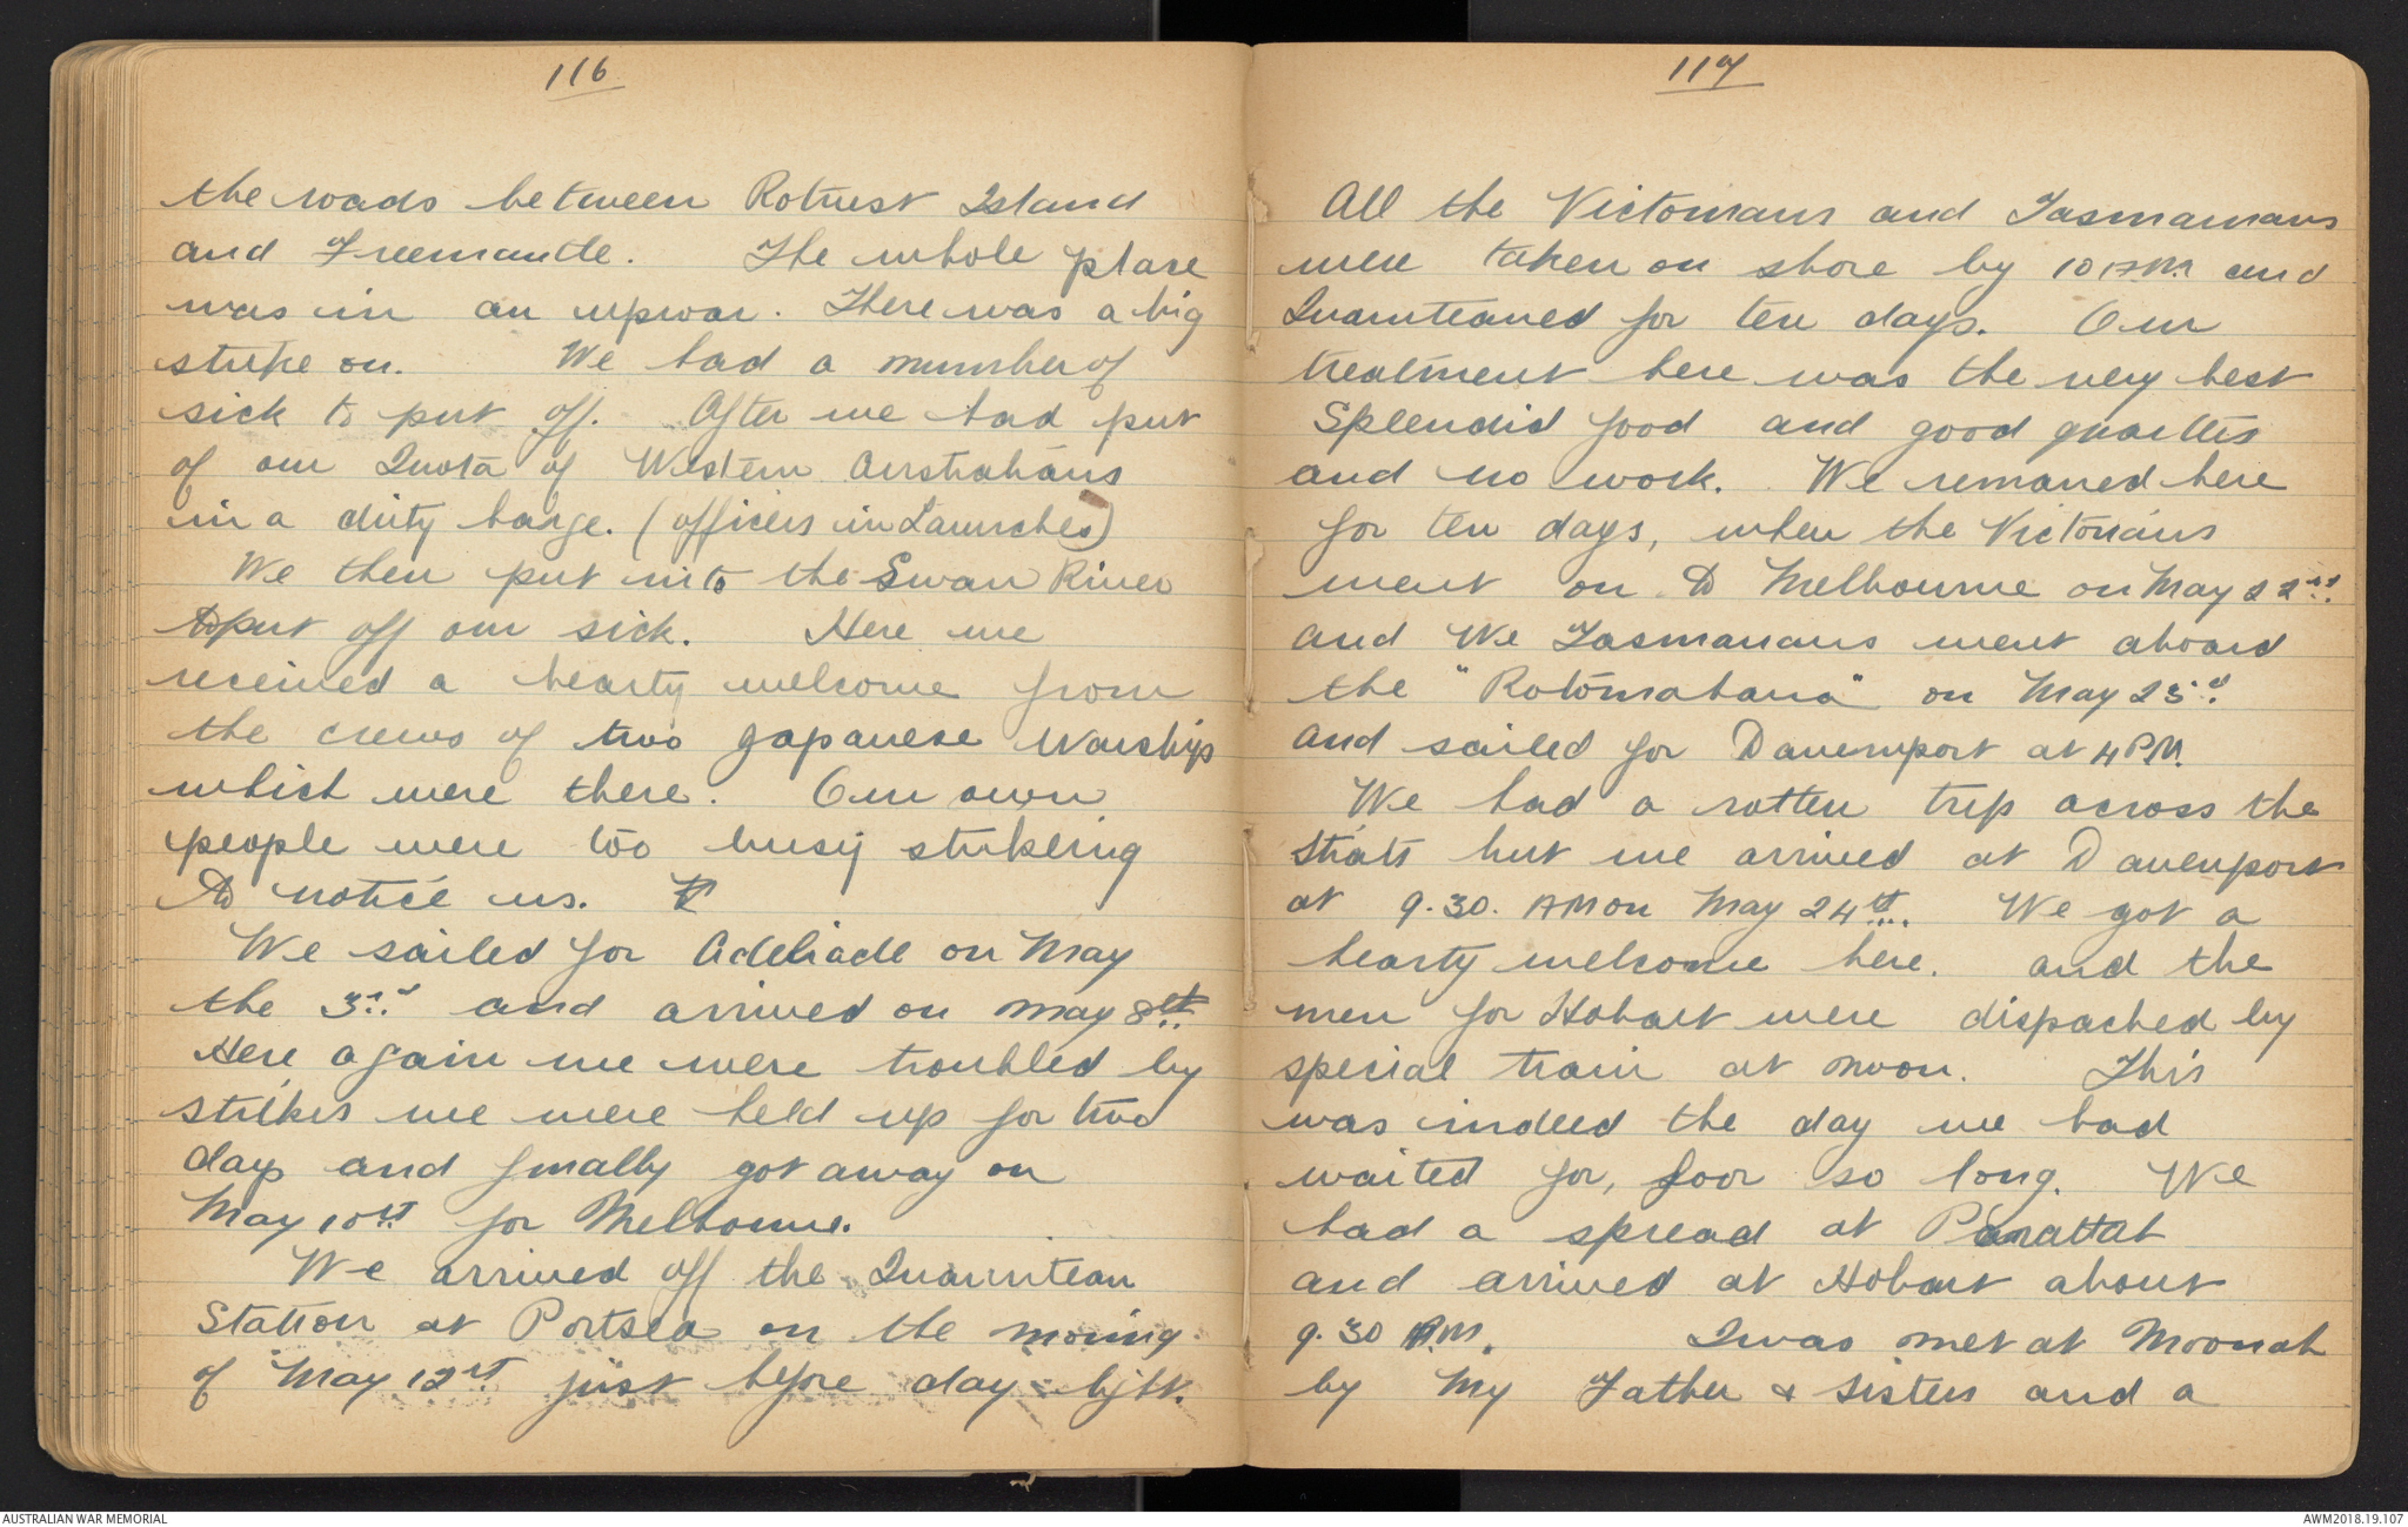 116
the roads between Rotnest Island
and Freemantle. The whole place
was in an upwar. There was a big
strike on. We had a number of
sick to put off. After we had put
of our Quota of Western Australians
in a dirty barge. (officers in Launches)
We then put into the Swan River
to put off our sick. Here we
received a hearty welcome from
the crews of two Japanese Warships
which were there. Our own
people were too busy strikeing
to notice us.
We sailed for Adeliade on May
the 3rd and arrived on May 8th.
Here again we were troubled by
strikes we were held up for two
days and finally got away on
May 10th for Melbourne.
We arrived off the Quarintean
Station at Portsea on the morning
of May 12th just before day light.
117
All the Victorians and Tasmanians
were taken on shore by 10 AM and
Quarnteaned for ten days. Our
treatment here was the very best
Splendid food and good quarters
and no work. We remaned here
for ten days, when the Victorians
went on to Melbourne on May 22nd.
and We Tasmanians went aboard
the "Rotomahana" on May 23rd.
and sailed for Davenport at 4 PM.
We had a rotten trip across the
Straits but we arrived at Davenport
at 9.30. AM on May 24th. We got a
hearty welcome here. and the
men for Hobart were dispached by
special train at noon. This
was indeed the day we had
waited for, for so long. We
had a spread at Parattah
and arrived at Hobart about
9.30 P.M. I was met at Moonah
by My Father & Sisters and a
AUSTRALIAN WAR MEMORIAL
AWM2018.19.107